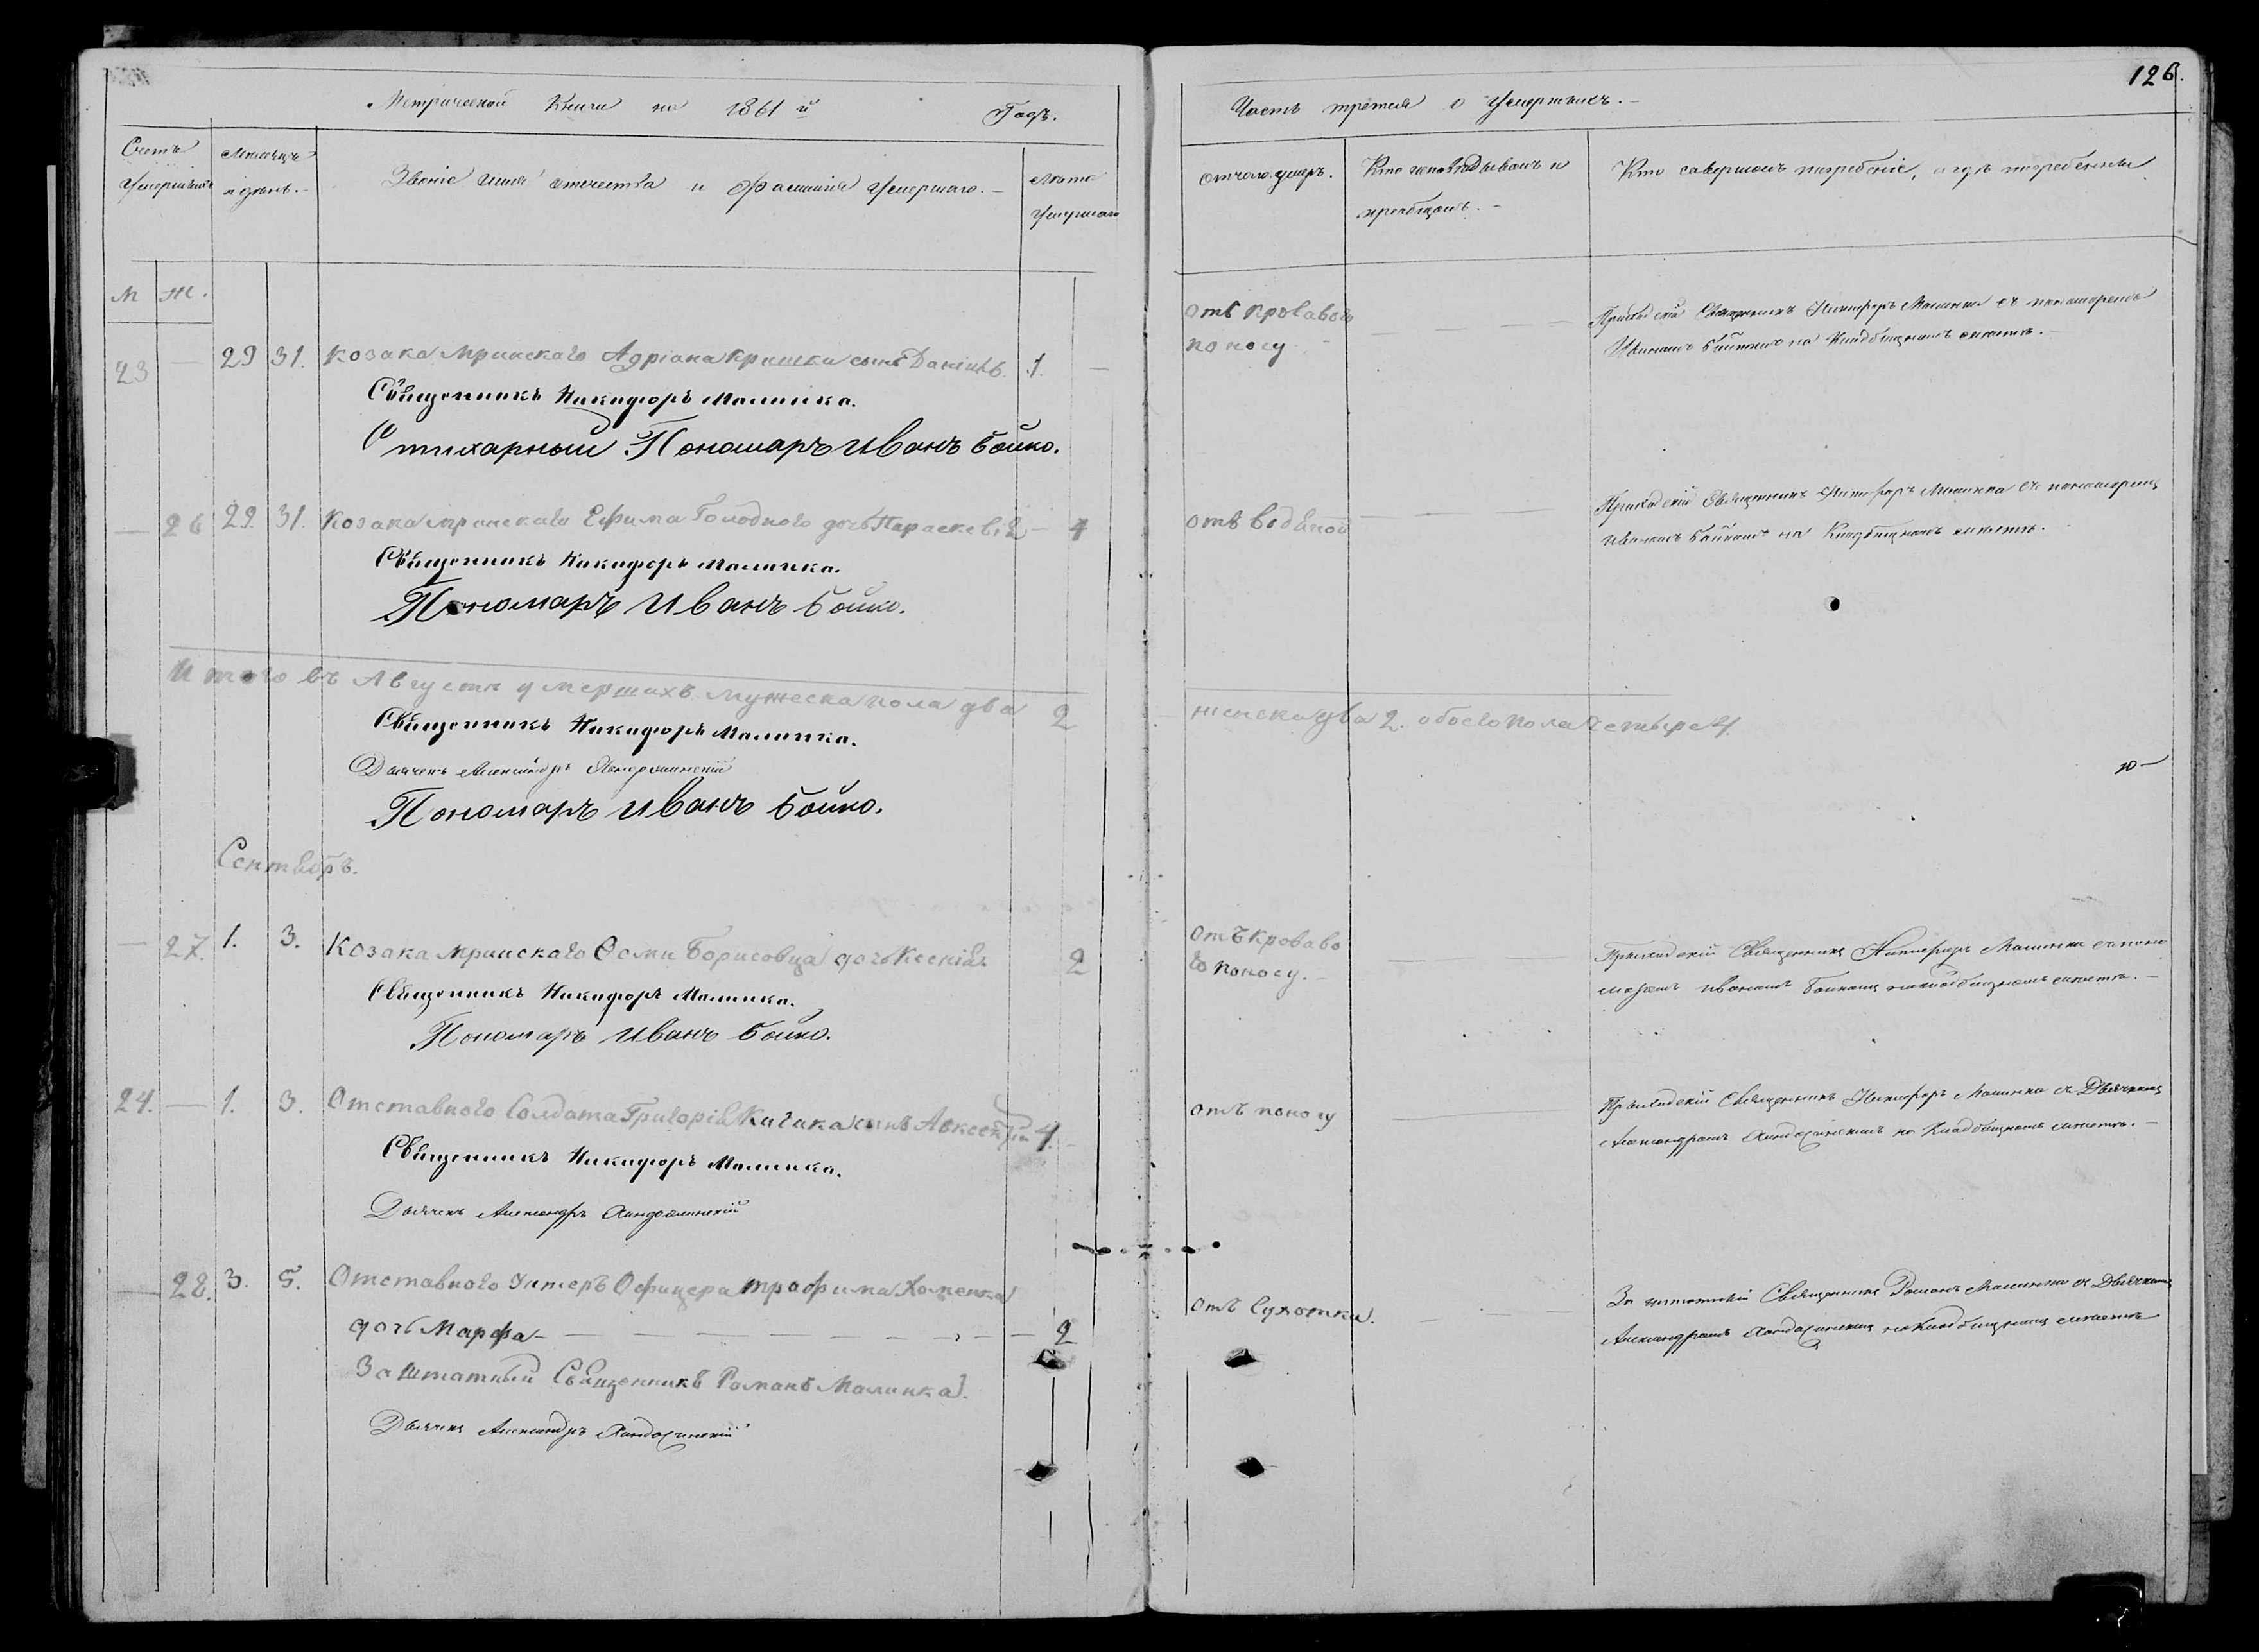 126.
Метрической Книги на 1861 й Годъ.
Часть третия о Умершихъ.-
Счетъ Умершихъ
Месяцъ и день.-
Званіе имя отчества и Фамилия Умершаго.-
Лѣта Умершаго
отчего умеръ.
Кто исповѣдывалъ и пріобщалъ.-
Кто савершалъ погребеніе, и гдѣ погребенны
М Ж.
23 — 29 31. Козака Мринскаго Адріана Кришки сынъ Даніилъ. 1. —
Священникъ Никифоръ Малинка.
Стихарный Пономаръ Иванъ Бойко.
отъ кроваваго
поносу
Приходскій Священникъ Никифоръ Малинка съ пономаремъ
Иваномъ Бойкомъ на Кладбищномъ
— 26 29. 31. Козака Мринскаго Ефима Голодного дочь Параскевія — 4
Священникъ Никифоръ Малинка.
Пономаръ Иванъ Бойко.
отъ
Приходскій Священникъ Никифоръ Малинка съ пономаремъ
Иваномъ Бойкомъ на Кладбищномъ
Итого въ Августѣ умершихъ мужеска пола два 2
женска два 2. обоего пола четыре 4.
Священникъ Никифоръ Малинка.
Дьячекъ Александръ
Пономаръ Иванъ Бойко.
Сентябръ.
— 27. 1. 3. Козака Мринскаго Ѳомы Борисовца дочь Ксенія 2
Священникъ Никифоръ Малинка.
Пономаръ Иванъ Бойко.
отъ кроваво
го поносу.-
Приходскій Священникъ Никифоръ Малинка съ поно
маремъ Иваномъ Бойкомъ на кладбищномъ
24. — 1. 3. Отставного Солдата Григорія Качака сынъ Авксентій 4.
Священникъ Никифоръ Малинка.
Дьячекъ Александръ
отъ поносу
Приходскій Священникъ Никифоръ Малинка съ Дьячкомъ
Александромъ на Кладбищномъ
— 28. 3. 5. Отставного Унтеръ Офицера Трофима Хоменка
дочь Марфа — 2
Заштатный Священникъ Романъ Малинка.
Дьячекъ Александръ
отъ Сухотки.
Заштатний Священникъ Романъ Малинка съ Дьячкомъ
Александромъ на Кладбищномъ